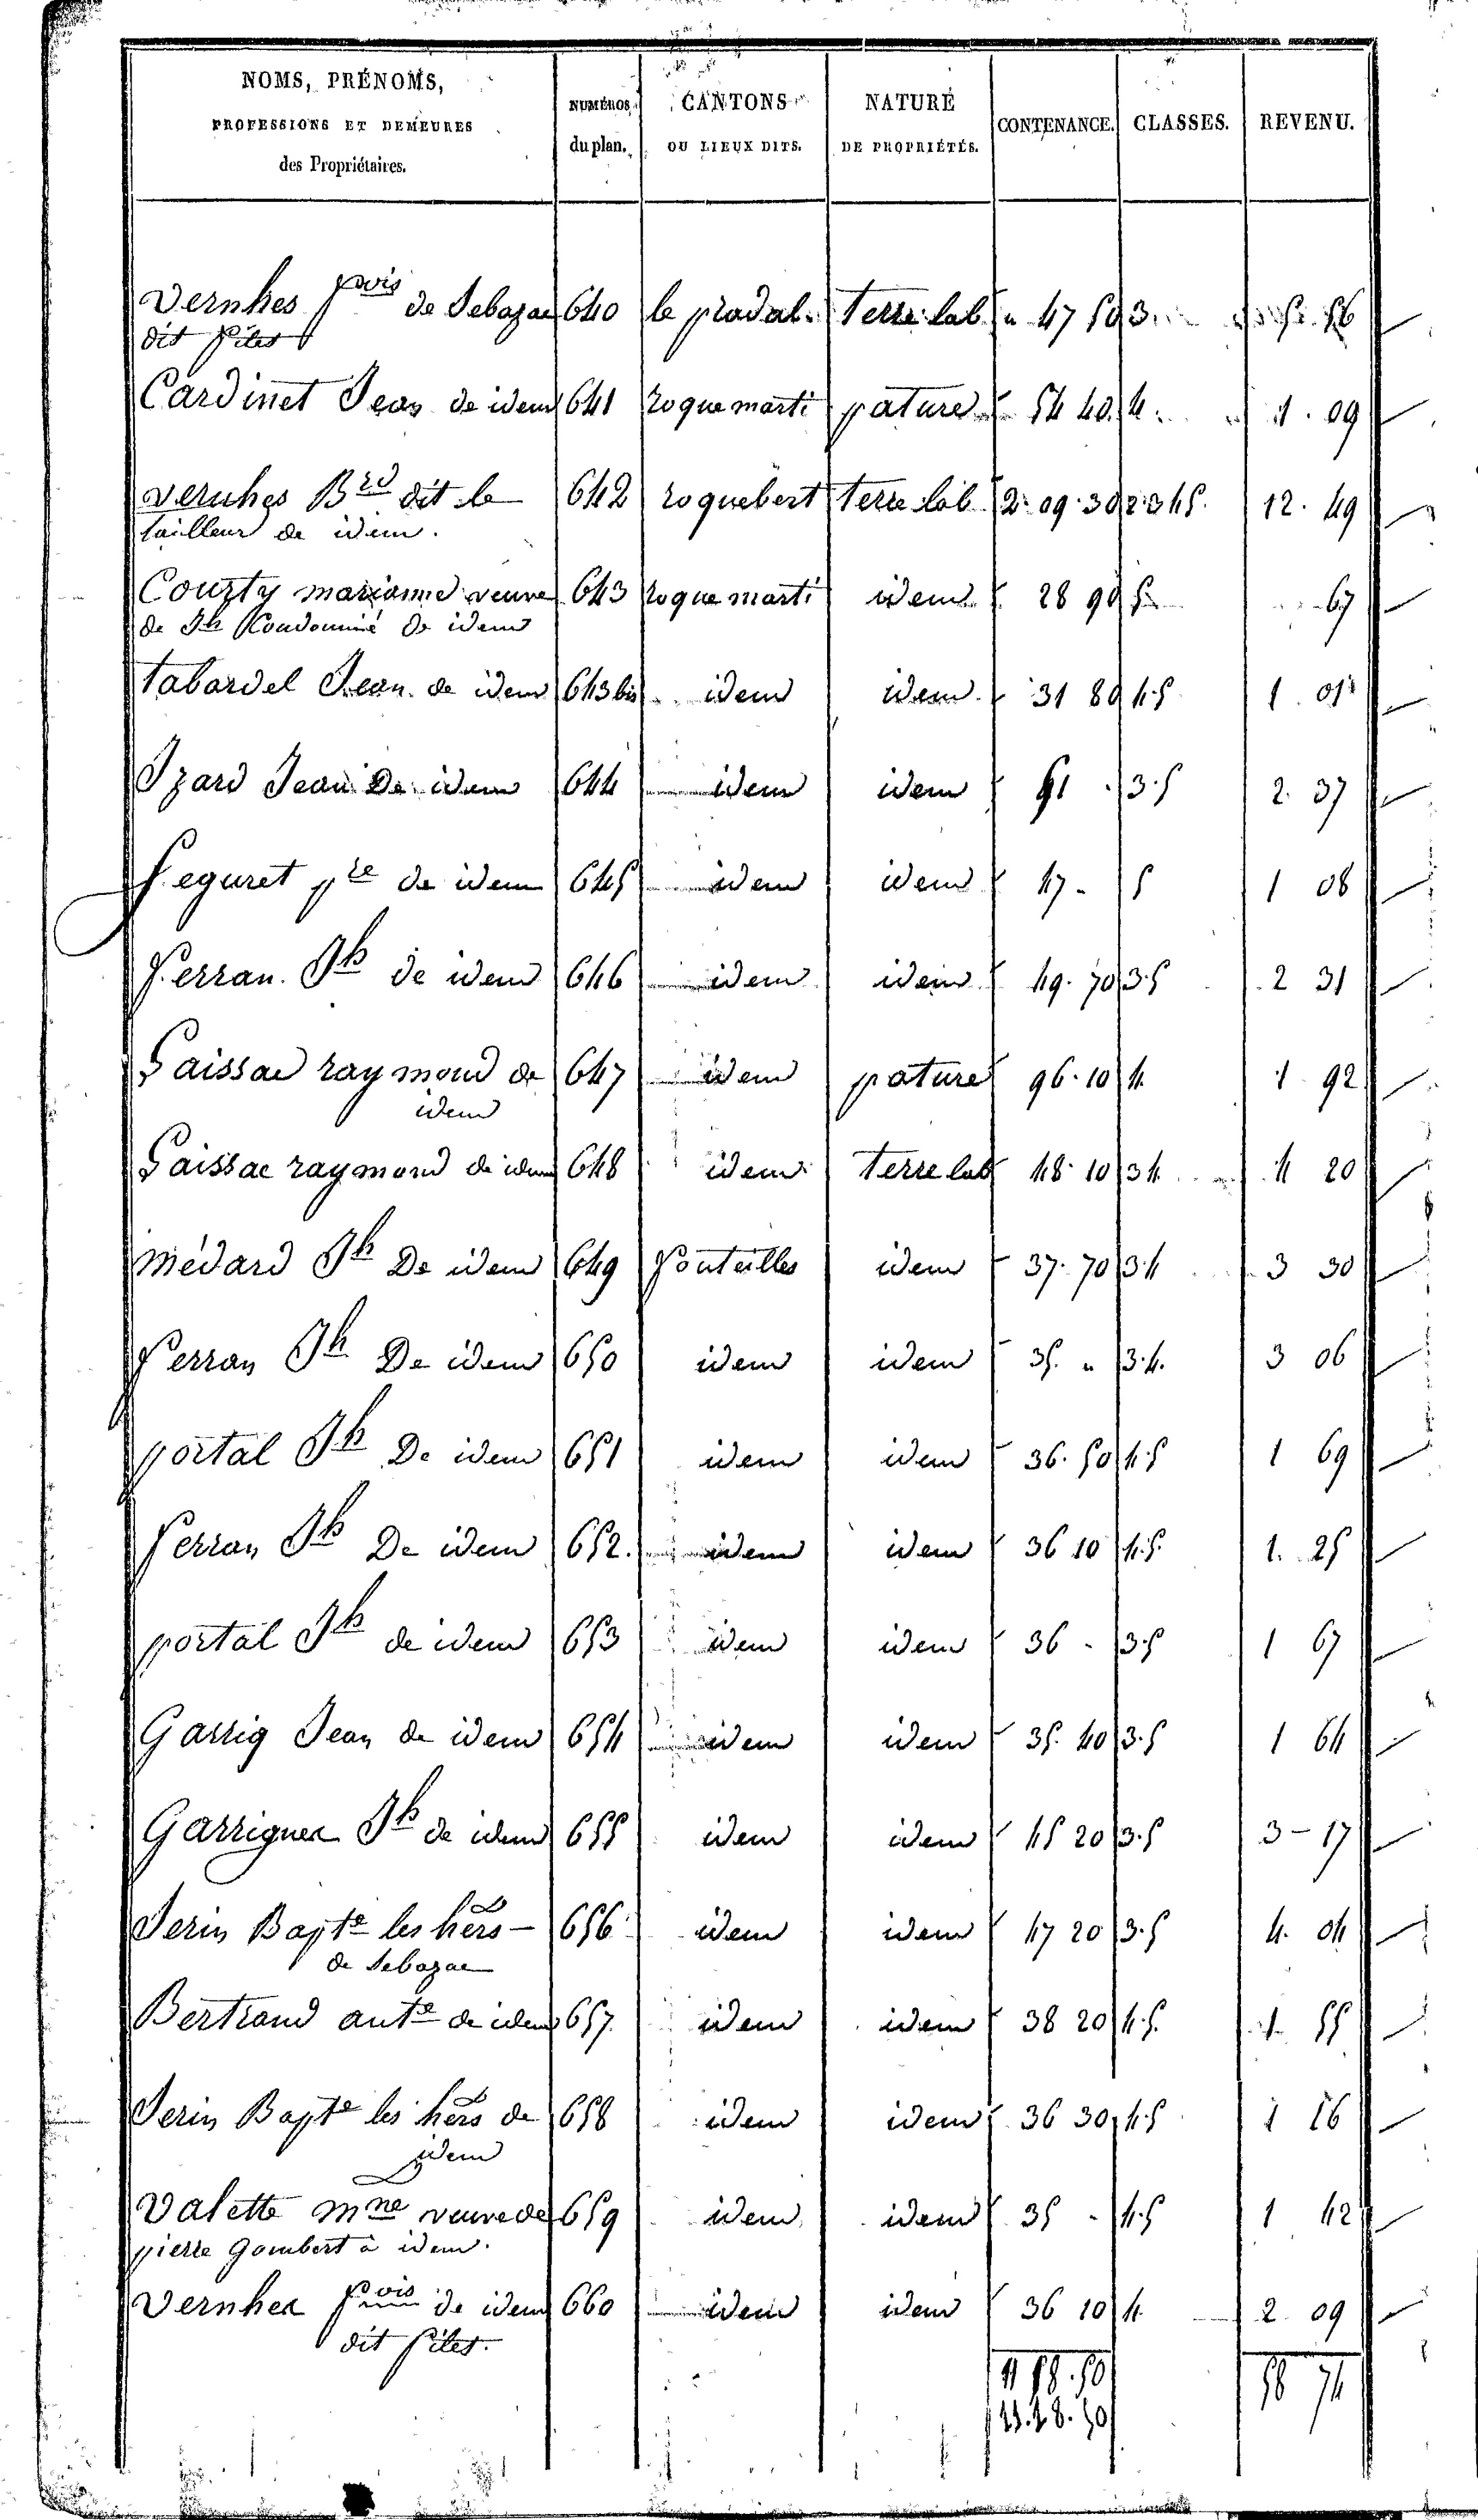 NOMS, PRÉNOMS,
PROFESSIONS ET DEMEURES
des Propriétaires.
NUMÉROS du plan.
CANTONS OU LIEUX DITS.
NATURE DE PROPRIÉTÉS.
CONTENANCE.
CLASSES.
REVENU.
Vernhes fois de Sebazac 640 le pradal terre lab " 47 50 3 5 56
dit pites
Cardinet Jean de idem 641 roquemarti pature 54 40 4 1 09
vernhes Brd dit le 642 roquebert terre lab 2 09 30 2 3 4 5 12 49
tailleur de idem.
Courty marianne veuve 643 roque marti idem 28 90 5 67
de Jh Coudomié de idem
tabardel Jean de idem 643 bis idem idem 31 80 4.5 1 01
Izard Jean De idem 644 idem idem 51 3.5 2 37
Seguret pre de idem 645 idem idem 47 - 5 1 08
Ferran Jh de idem 646 idem idem 49.70 3.5 2 31
Gaissac raymond de 647 idem pature 96.10 4 1 92
idem
Gaissac raymond de idem 648 idem terre lab 48 10 3 4 4 20
médard Jh De idem 649 fonteilles idem 37.70 3.4 3 30
Ferran Jh De idem 650 idem idem 35 " 3.4. 3 06
portal Jh De idem 651 idem idem 36.50 4.5 1 69
Ferran Jh De idem 652. idem idem 36 10 4.5 1. 25
portal Jh de idem 653 idem idem 36 - 3.5 1 67
Garrig Jean de idem 654 idem idem 35.40 3.5 1 64
Garrigues Jh de idem 655 idem idem 45 20 3.5 3 - 17
Serin Bapte les hers - 656 idem idem 47 20 3.5 4. 04
de Sebazac
Bertrand ante de idem 657 idem idem 38 20 4.5. 1 55
Serin Bapte les hers de 658 idem idem 36 30 4.5 1 16
idem
Valette mne veuve de 659 idem idem 35 - 4.5 1 42
pierre Gombert à idem.
Vernhes fois de idem 660 idem idem 36 10 4 2 09
dit pites.
11 58.50 58 74